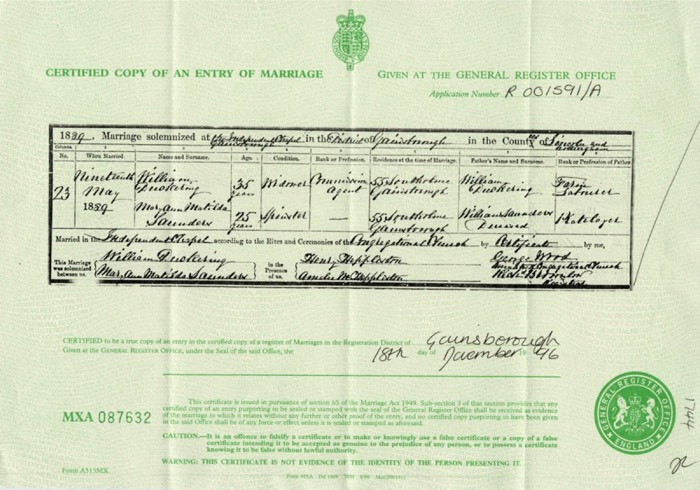 CERTIFIED COPY OF AN ENTRY OF MARRIAGE
GIVEN AT THE GENERAL REGISTER OFFICE
Application Number R 001591/A
1889. Marriage solemnized at the Independent Chapel Gainsborough in the District of Gainsborough in the County of Lincoln and
Columns
No. When Married. Name and Surname. Age. Condition. Rank or Profession. Residence at the time of Marriage. Father's Name and Surname. Rank or Profession of Father
73 Nineteenth May 1889 William 35 years Widower Commission Agent 55 Southolme Gainsborough William Farm Labourer
Mary Ann Matilda Saunders 25 years Spinster — 55 Southolme Gainsborough William Saunders Deceased
Married in the Independent Chapel according to the Rites and Ceremonies of the Congregational Church by Certificate by me,
This Marriage was solemnized between us, William
Mary Ann Matilda Saunders
in the Presence of us,
Henry
George Wood
Registrar
CERTIFIED to be a true copy of an entry in the certified copy of a register of Marriages in the Registration District of Gainsborough
Given at the GENERAL REGISTER OFFICE, under the Seal of the said Office, the 18th day of November 1996
MXA 087632
This certificate is issued in pursuance of section 65 of the Marriage Act 1949. Sub-section 3 of that section provides that any
certified copy of an entry purporting to be sealed or stamped with the seal of the General Register Office shall be received as evidence
of the marriage to which it relates without any further or other proof of the entry, and no certified copy purporting to have been given
in the said Office shall be of any force or effect unless it is sealed or stamped as aforesaid.
CAUTION:—It is an offence to falsify a certificate or to make or knowingly use a false certificate or a copy of a false
certificate intending it to be accepted as genuine to the prejudice of any person, or to possess a certificate
knowing it to be false without lawful authority.
WARNING: THIS CERTIFICATE IS NOT EVIDENCE OF THE IDENTITY OF THE PERSON PRESENTING IT.
Form A513MX
GENERAL REGISTER OFFICE
ENGLAND